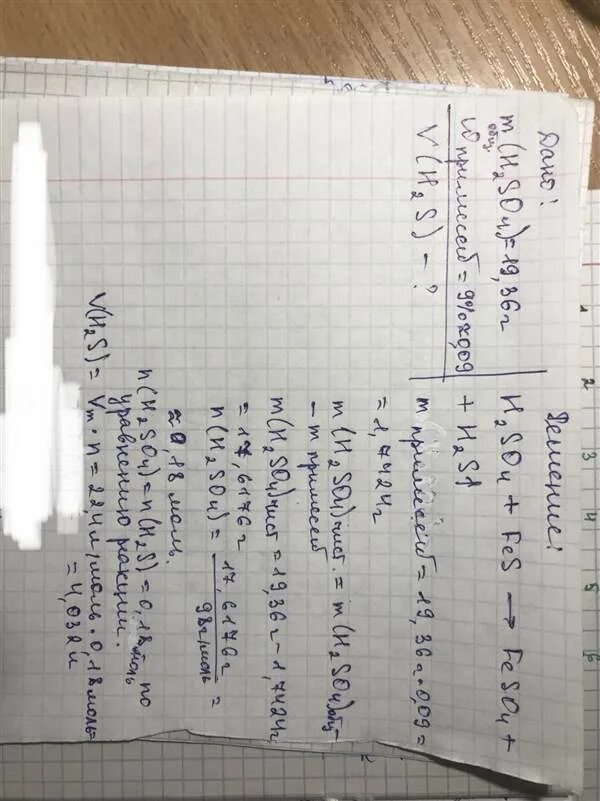 Дано:
m(H₂SO₄)=19,36г
общ.
ω примесей=9%=0,09
V(H₂S) - ?
Решение:
H₂SO₄ + FeS → FeSO₄ +
+ H₂S↑
m примесей = 19,36г·0,09=
=1,7424г
m(H₂SO₄)чист. = m(H₂SO₄)общ-
- m примесей
m(H₂SO₄)чист=19,36г-1,7424г
=17,6176г
n(H₂SO₄) = 17,6176г =
98г/моль
≈0,18 моль.
n(H₂SO₄)=n(H₂S)=0,18моль по
уравнению реакции.
V(H₂S)= Vm·n=22,4л/моль·0,18моль=
=4,032л